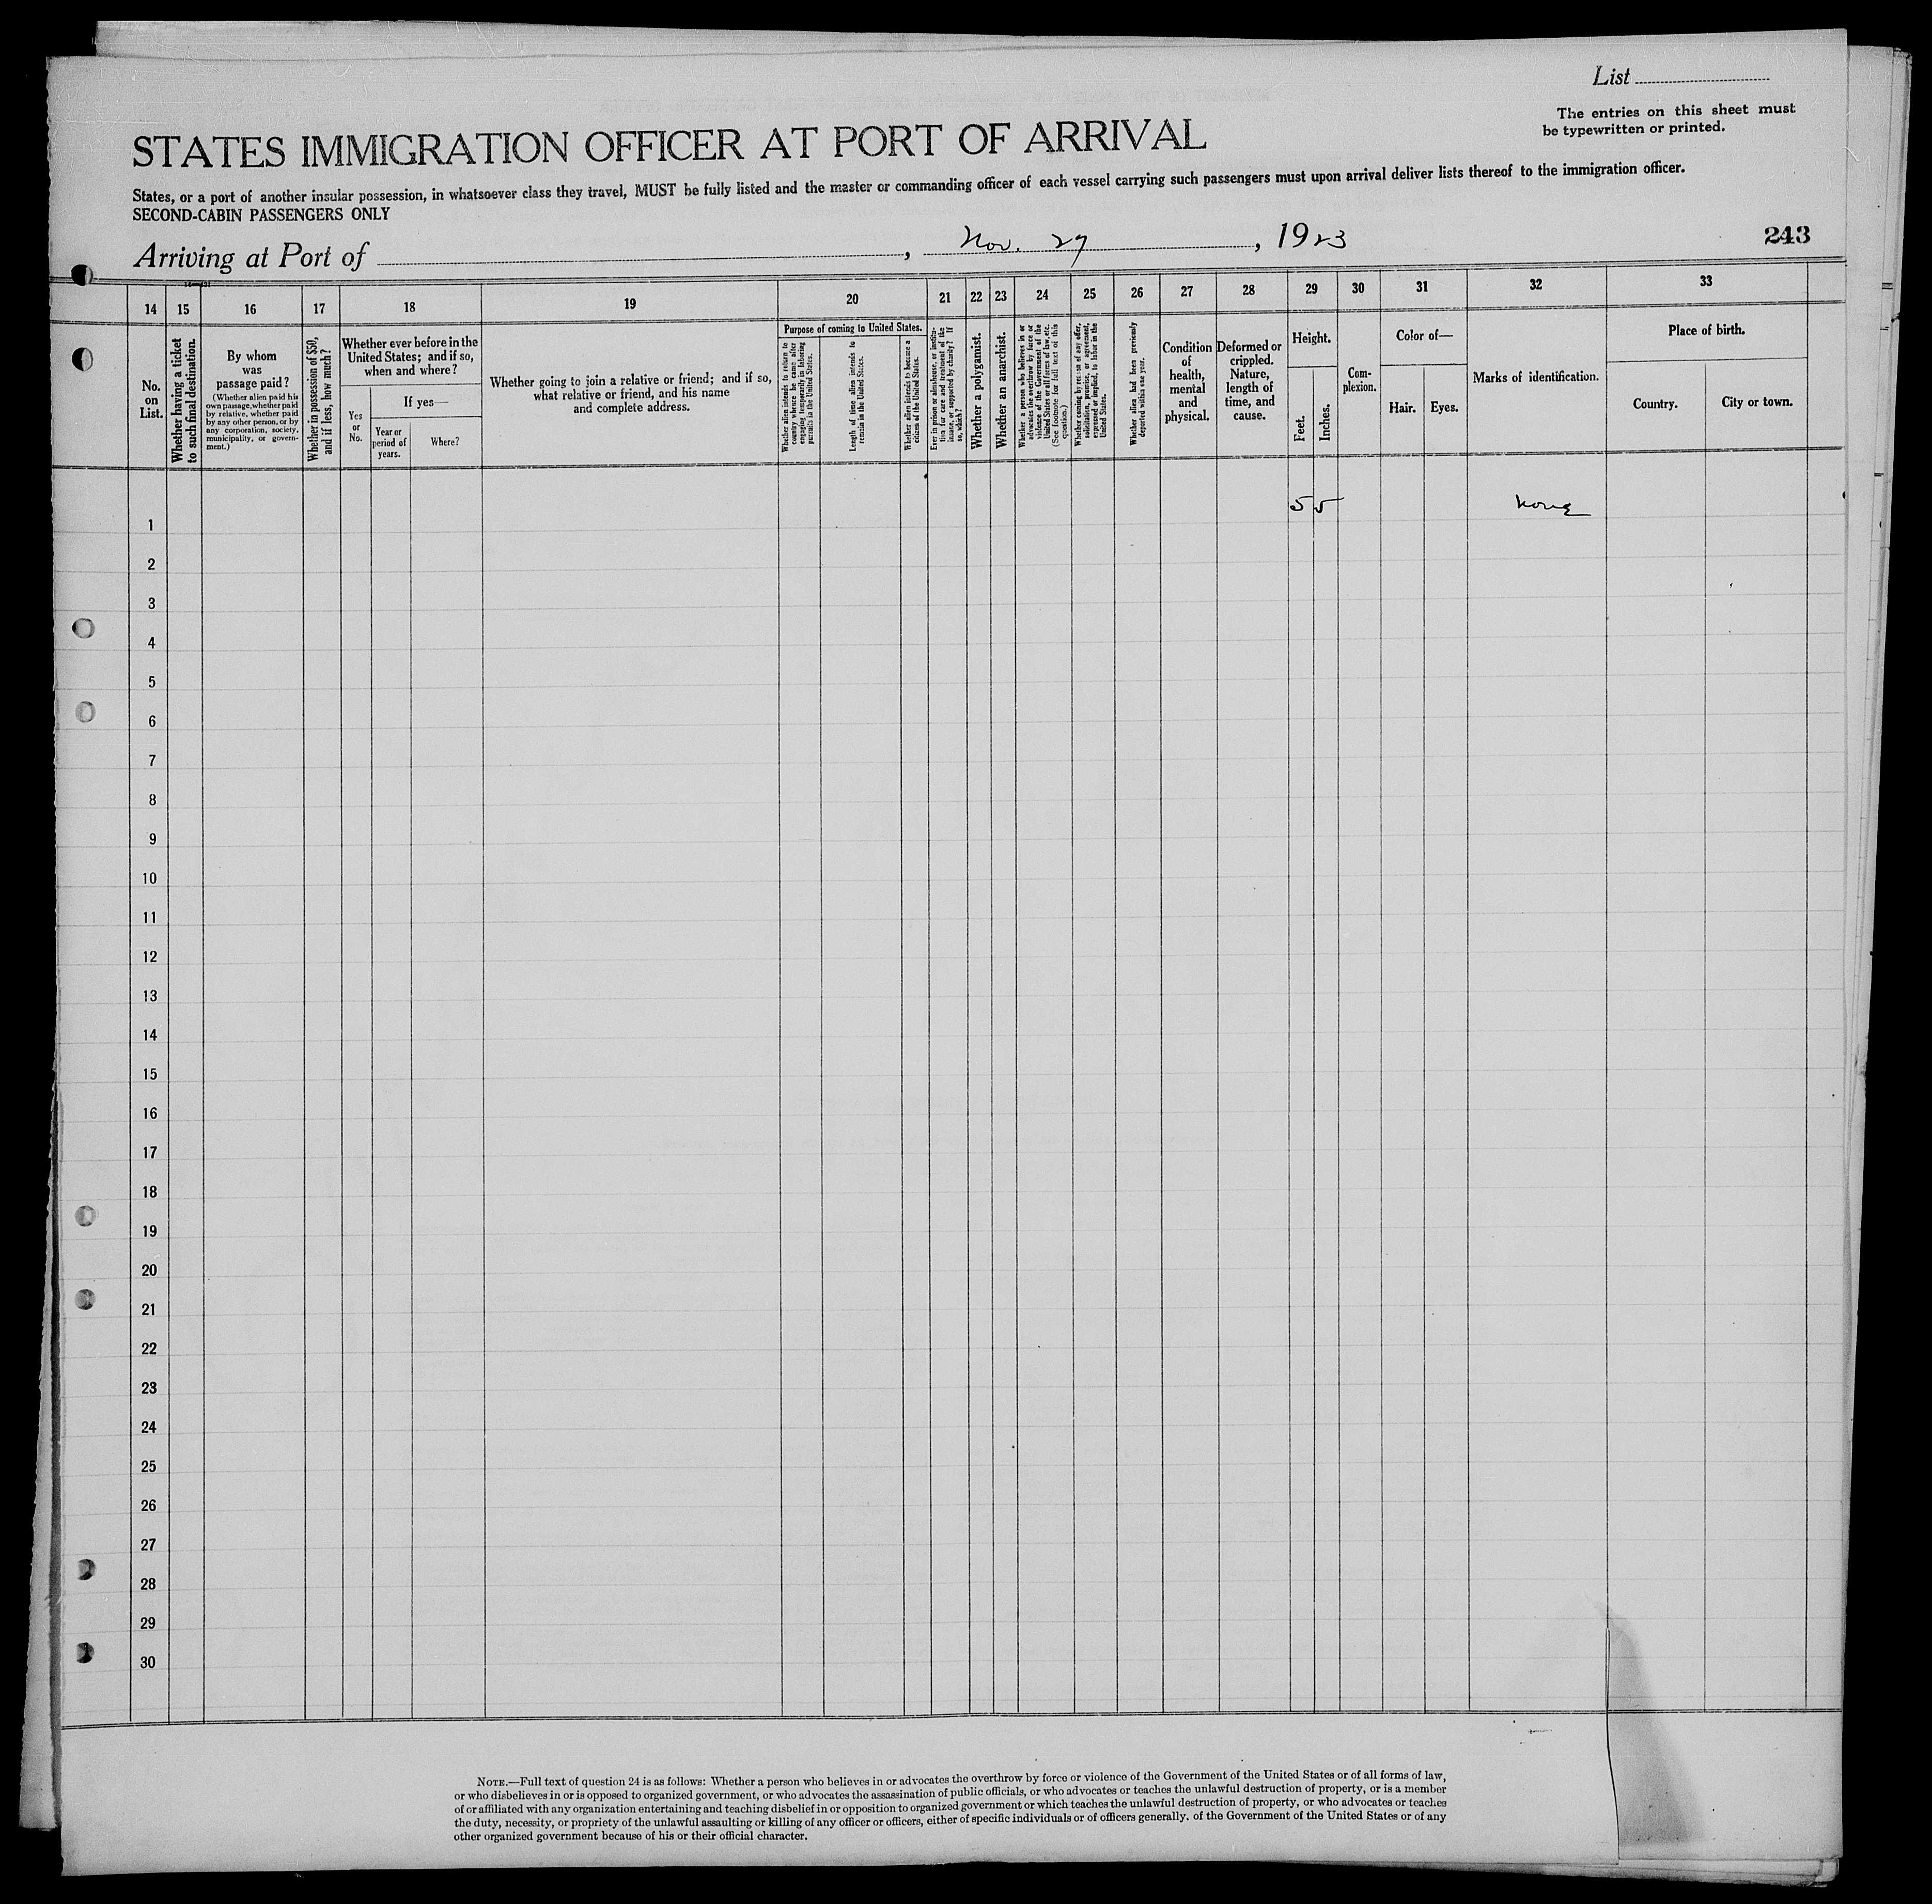 List
The entries on this sheet must
be typewritten or printed.
STATES IMMIGRATION OFFICER AT PORT OF ARRIVAL
States, or a port of another insular possession, in whatsoever class they travel, MUST be fully listed and the master or commanding officer of each vessel carrying such passengers must upon arrival deliver lists thereof to the immigration officer.
SECOND-CABIN PASSENGERS ONLY
Arriving at Port of , Nov. 27 , 1923
243
14 15 16 17 18 19 20 21 22 23 24 25 26 27 28 29 30 31 32 33
No.
on
List.
Whether having a ticket
to such final destination.
By whom
was
passage paid?
(Whether alien paid his
own passage, whether paid
by relative, whether paid
by any other person, or by
any corporation, society,
municipality, or govern-
ment.)
Whether in possession of $50,
and if less, how much?
Whether ever before in the
United States; and if so,
when and where?
Yes
or
No.
If yes—
Year or
period of
years.
Where?
Whether going to join a relative or friend; and if so,
what relative or friend, and his name
and complete address.
Purpose of coming to United States.
Whether alien intends to return to
country whence he came after
engaging temporarily in laboring
pursuits in the United States.
Length of time alien intends to
remain in the United States.
Whether alien intends to become a
citizen of the United States.
Ever in prison or almshouse, or institu-
tion for care and treatment of the
insane, or supported by charity? If
so, which?
Whether a polygamist.
Whether an anarchist.
Whether a person who believes in or
advocates the overthrow by force or
violence of the Government of the
United States or all forms of law, etc.
(See footnote for full text of this
question.)
Whether coming by reason of any offer,
solicitation, promise, or agreement,
expressed or implied, to labor in the
United States.
Whether alien had been previously
deported within one year.
Condition
of
health,
mental
and
physical.
Deformed or
crippled.
Nature,
length of
time, and
cause.
Height.
Feet.
Inches.
Com-
plexion.
Color of—
Hair.
Eyes.
Marks of identification.
Place of birth.
Country.
City or town.
5 5 none
1
2
3
4
5
6
7
8
9
10
11
12
13
14
15
16
17
18
19
20
21
22
23
24
25
26
27
28
29
30
NOTE.—Full text of question 24 is as follows: Whether a person who believes in or advocates the overthrow by force or violence of the Government of the United States or of all forms of law,
or who disbelieves in or is opposed to organized government, or who advocates the assassination of public officials, or who advocates or teaches the unlawful destruction of property, or is a member
of or affiliated with any organization entertaining and teaching disbelief in or opposition to organized government or which teaches the unlawful destruction of property, or who advocates or teaches
the duty, necessity, or propriety of the unlawful assaulting or killing of any officer or officers, either of specific individuals or of officers generally. of the Government of the United States or of any
other organized government because of his or their official character.